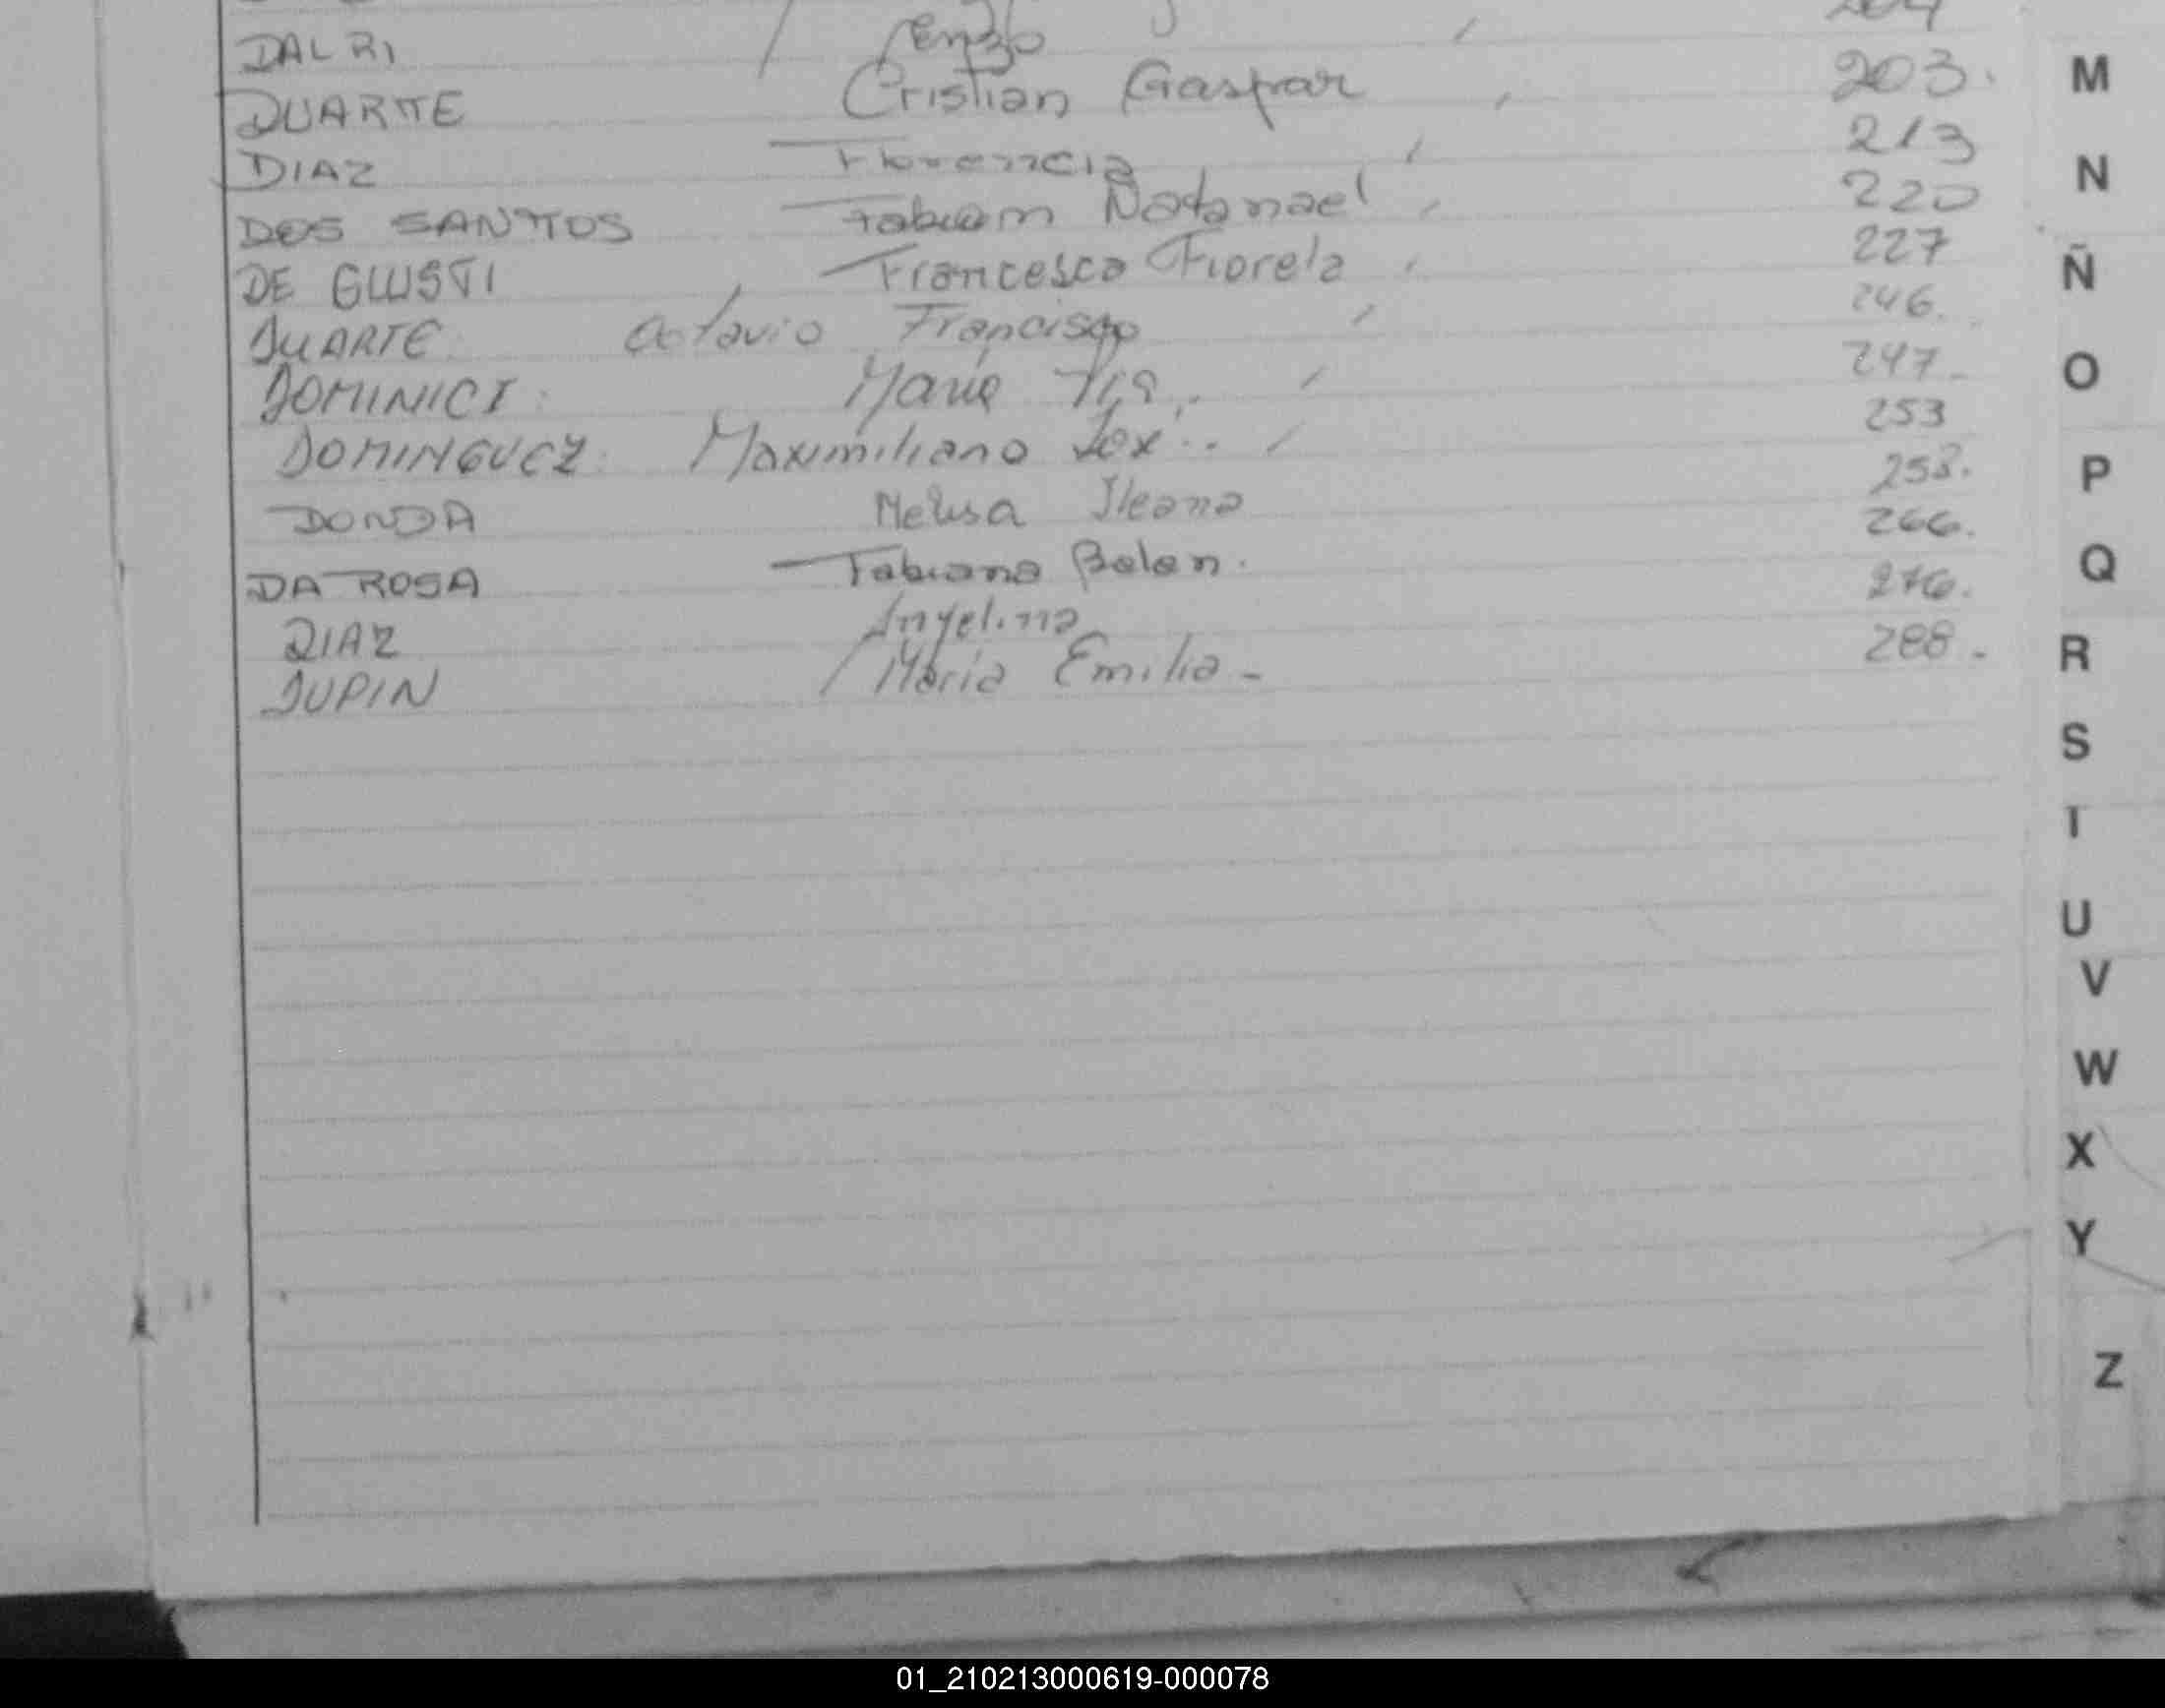 DAL RI Renzo
DUARTE Cristian Gaspar 203.
DIAZ Florencia 213
DOS SANTOS Fabian Natanael 220
DE GIUSTI Francesca Fiorela 227
DUARTE Octavio Francisco 246.
DOMINICI María Pía 247
DOMINGUEZ Maximiliano Lex 253
DONDA Melisa Ileana 258.
DA ROSA Fabiana Belen. 266.
DIAZ Angelina 276.
DUPIN María Emilia - 288.
M
N
Ñ
O
P
Q
R
S
T
U
V
W
X
Y
Z
01_210213000619-000078